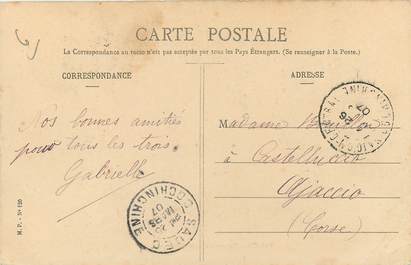 CARTE POSTALE
La Correspondance au recto n'est pas acceptée par tous les Pays Étrangers. (Se renseigner à la Poste.)
CORRESPONDANCE
ADRESSE
Nos bonnes amitiés
pour tous les trois.
Gabrielle
Madame
à Castelluccio
Ajaccio
(Corse)
COCHINCHINE
MARS
07
M. P. - N° 120